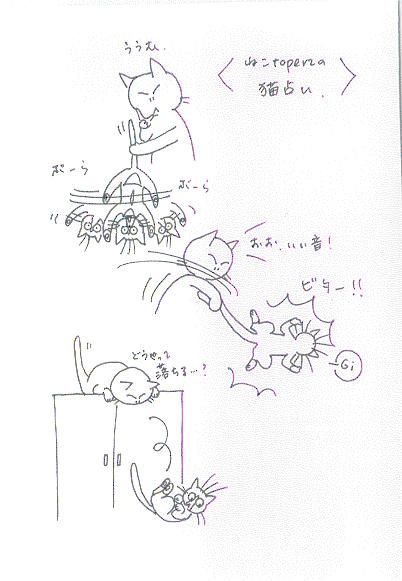 ううむ、
〈 ねこtoperaの 〉
猫占い、
ぶーら
ぶーら
おお、いい音!
ビターー!!
Gi
どうやって
落ちる…?